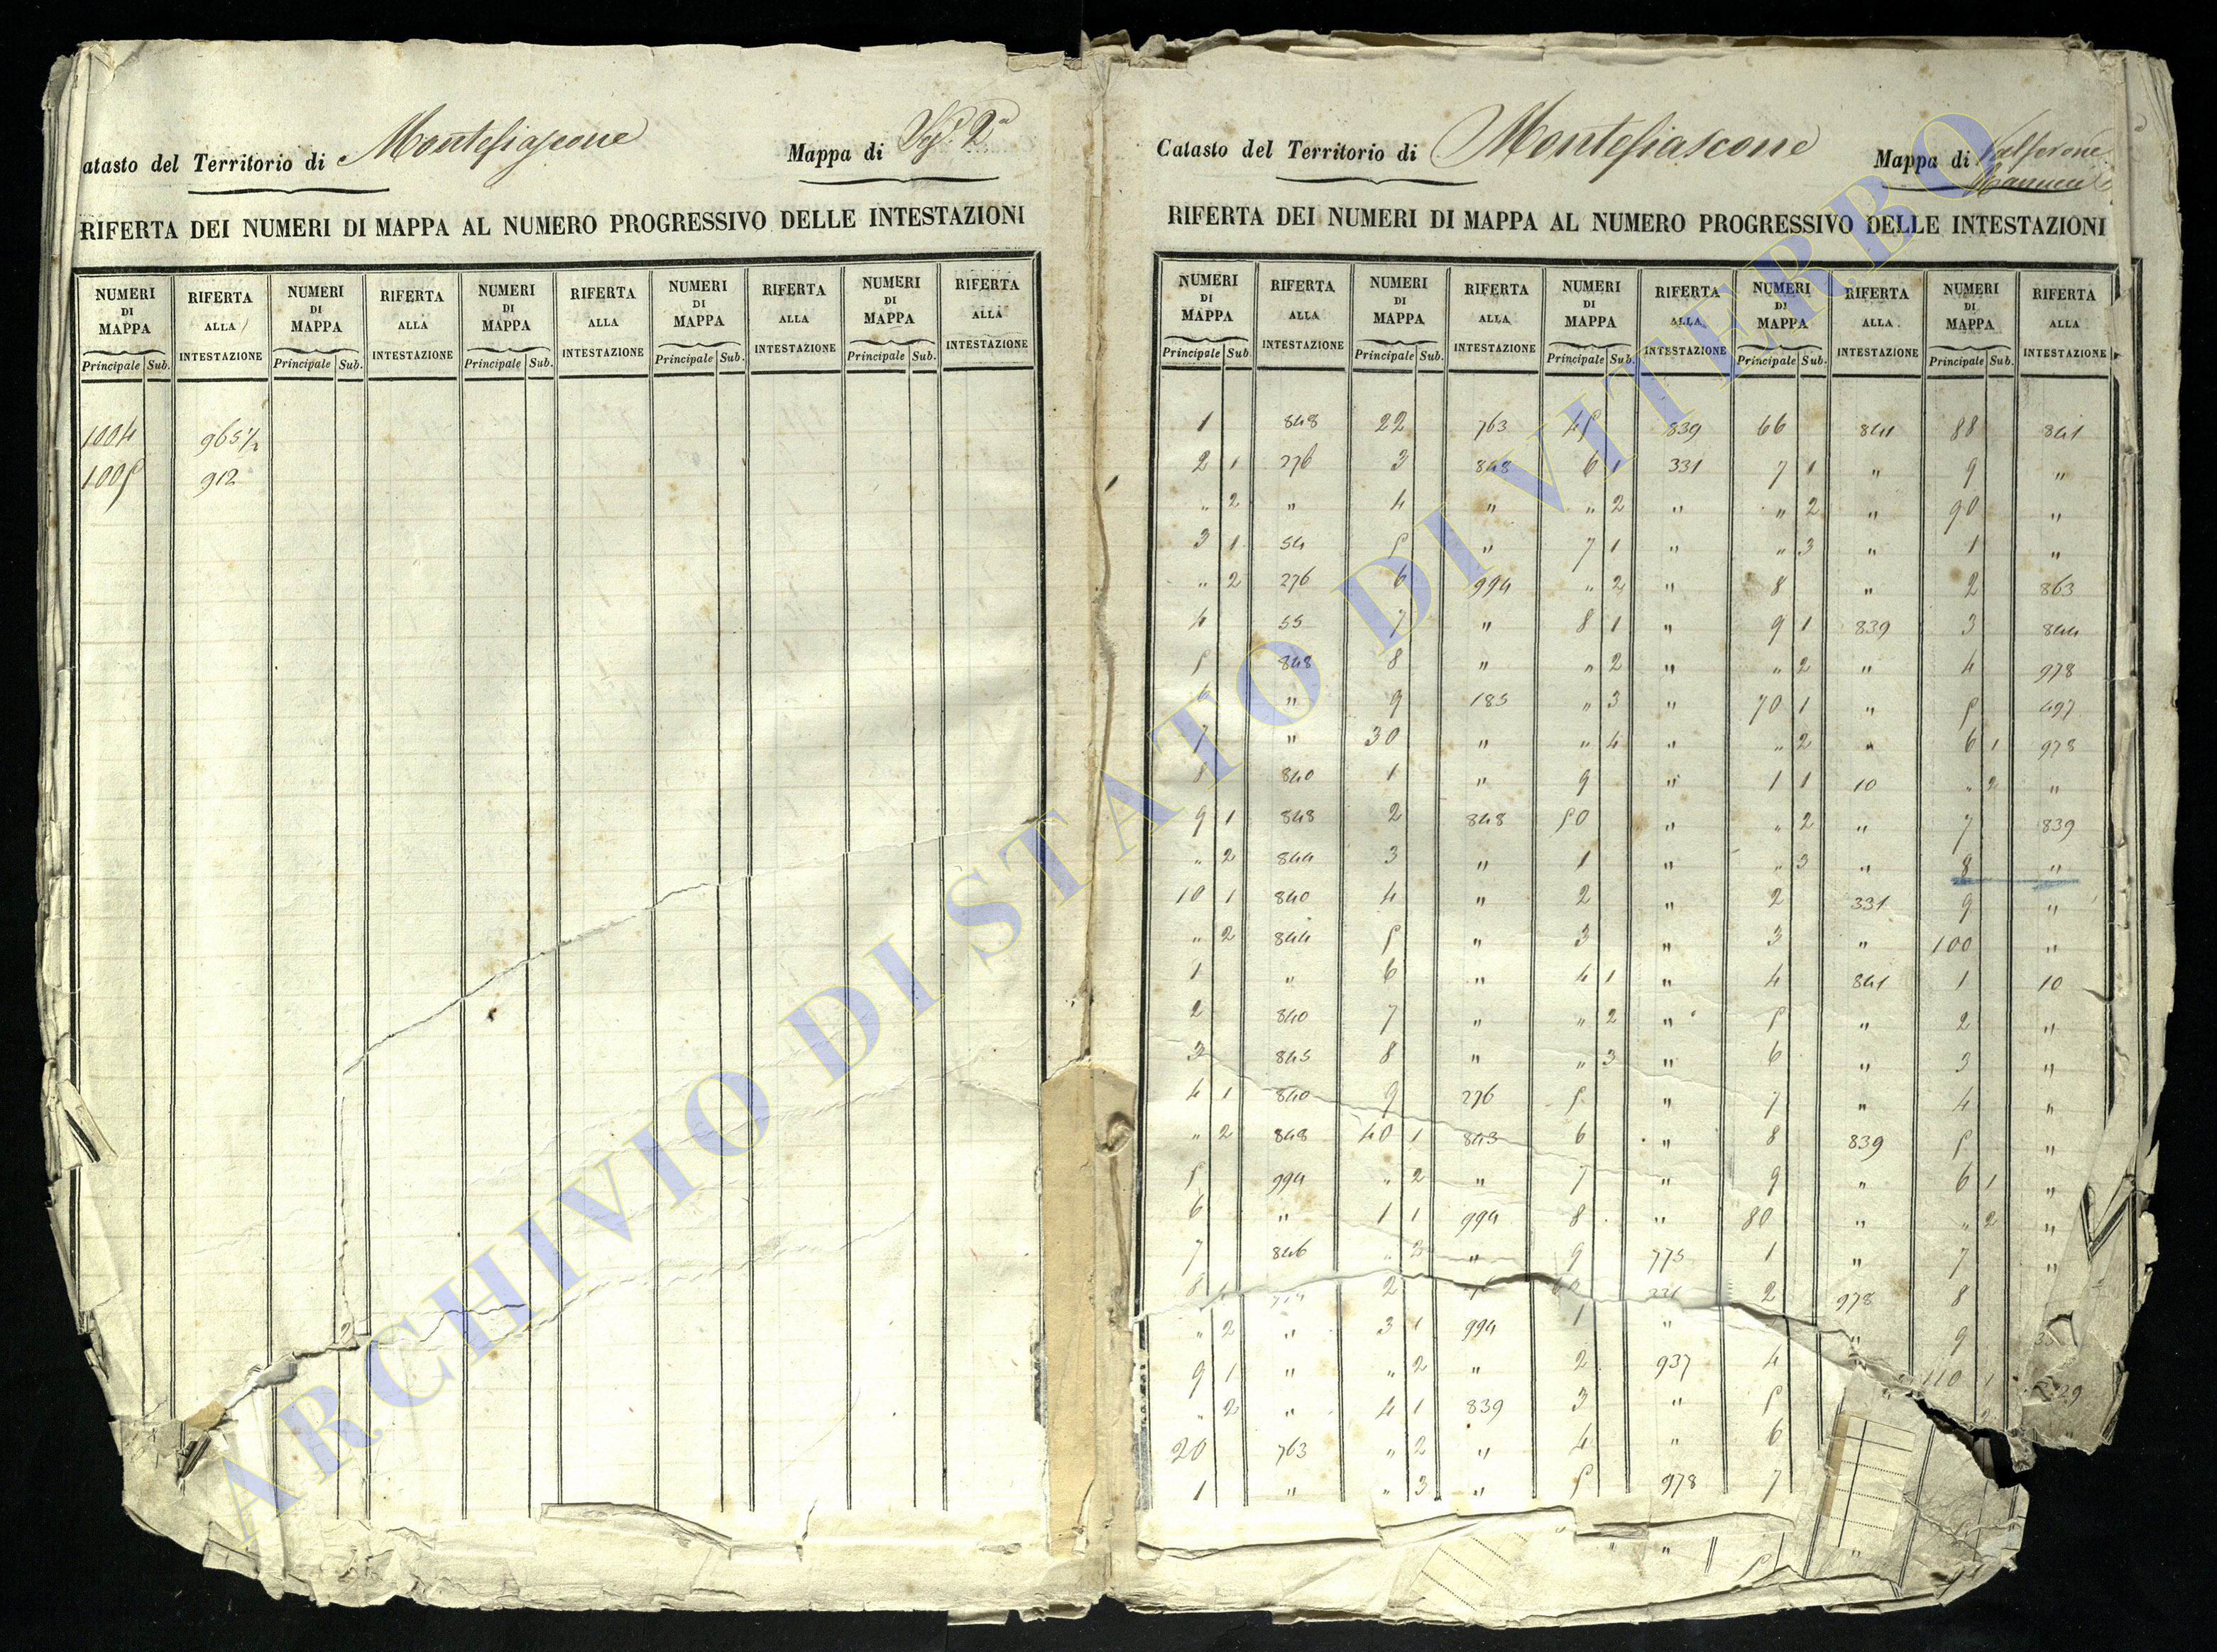 atasto del Territorio di Montefiascone Mappa di 2ª
RIFERTA DEI NUMERI DI MAPPA AL NUMERO PROGRESSIVO DELLE INTESTAZIONI
NUMERI DI MAPPA RIFERTA ALLA INTESTAZIONE NUMERI DI MAPPA RIFERTA ALLA INTESTAZIONE NUMERI DI MAPPA RIFERTA ALLA INTESTAZIONE NUMERI DI MAPPA RIFERTA ALLA INTESTAZIONE NUMERI DI MAPPA RIFERTA ALLA INTESTAZIONE
Principale Sub. Principale Sub. Principale Sub. Principale Sub. Principale Sub.
1004 965 1/2
1005 912
Catasto del Territorio di Montefiascone Mappa di
RIFERTA DEI NUMERI DI MAPPA AL NUMERO PROGRESSIVO DELLE INTESTAZIONI
NUMERI DI MAPPA RIFERTA ALLA INTESTAZIONE NUMERI DI MAPPA RIFERTA ALLA INTESTAZIONE NUMERI DI MAPPA RIFERTA ALLA INTESTAZIONE NUMERI DI MAPPA RIFERTA ALLA INTESTAZIONE NUMERI DI MAPPA RIFERTA ALLA INTESTAZIONE
Principale Sub. Principale Sub. Principale Sub. Principale Sub. Principale Sub.
1 848 22 763 45 839 66 841 88 841
2 1 276 3 848 6 1 331 7 1 " 9 "
" 2 " 4 " " 2 " " 2 " 90 "
3 1 54 5 " 7 1 " " 3 " 1 "
" 2 276 6 994 " 2 " 8 " 2 863
4 55 7 " 8 1 " 9 1 839 3 844
5 848 8 " " 2 " " 2 " 4 978
6 " 9 185 " 3 " 70 1 " 5 497
7 " 30 " " 4 " " 2 " 6 1 978
8 840 1 " 9 " 1 1 10 " 2 "
9 1 848 2 848 50 " " 2 " 7 839
" 2 844 3 " 1 " " 3 " 8 "
10 1 840 4 " 2 " 2 331 9 "
" 2 844 5 " 3 " 3 " 100 "
1 " 6 " 4 1 " 4 841 1 10
2 840 7 " " 2 " 5 " 2 "
3 845 8 " " 3 " 6 " 3 "
4 1 840 9 276 5 " 7 " 4 "
" 2 848 40 1 843 6 " 8 839 5 "
5 994 " 2 " 7 " 9 " 6 1 "
6 " 1 1 994 8 " 80 " " 2 "
7 846 " 2 " 9 775 1 " 7 "
8 2 2 978 8
" 2 " 3 1 994 1 " " 9
9 1 " " 2 " 2 937 4 " 110 1
" 2 " 4 1 839 3 " 5
20 763 " 2 " 4 " 6
1 " " 3 " 5 978 7
ARCHIVIO DI STATO DI VITERBO